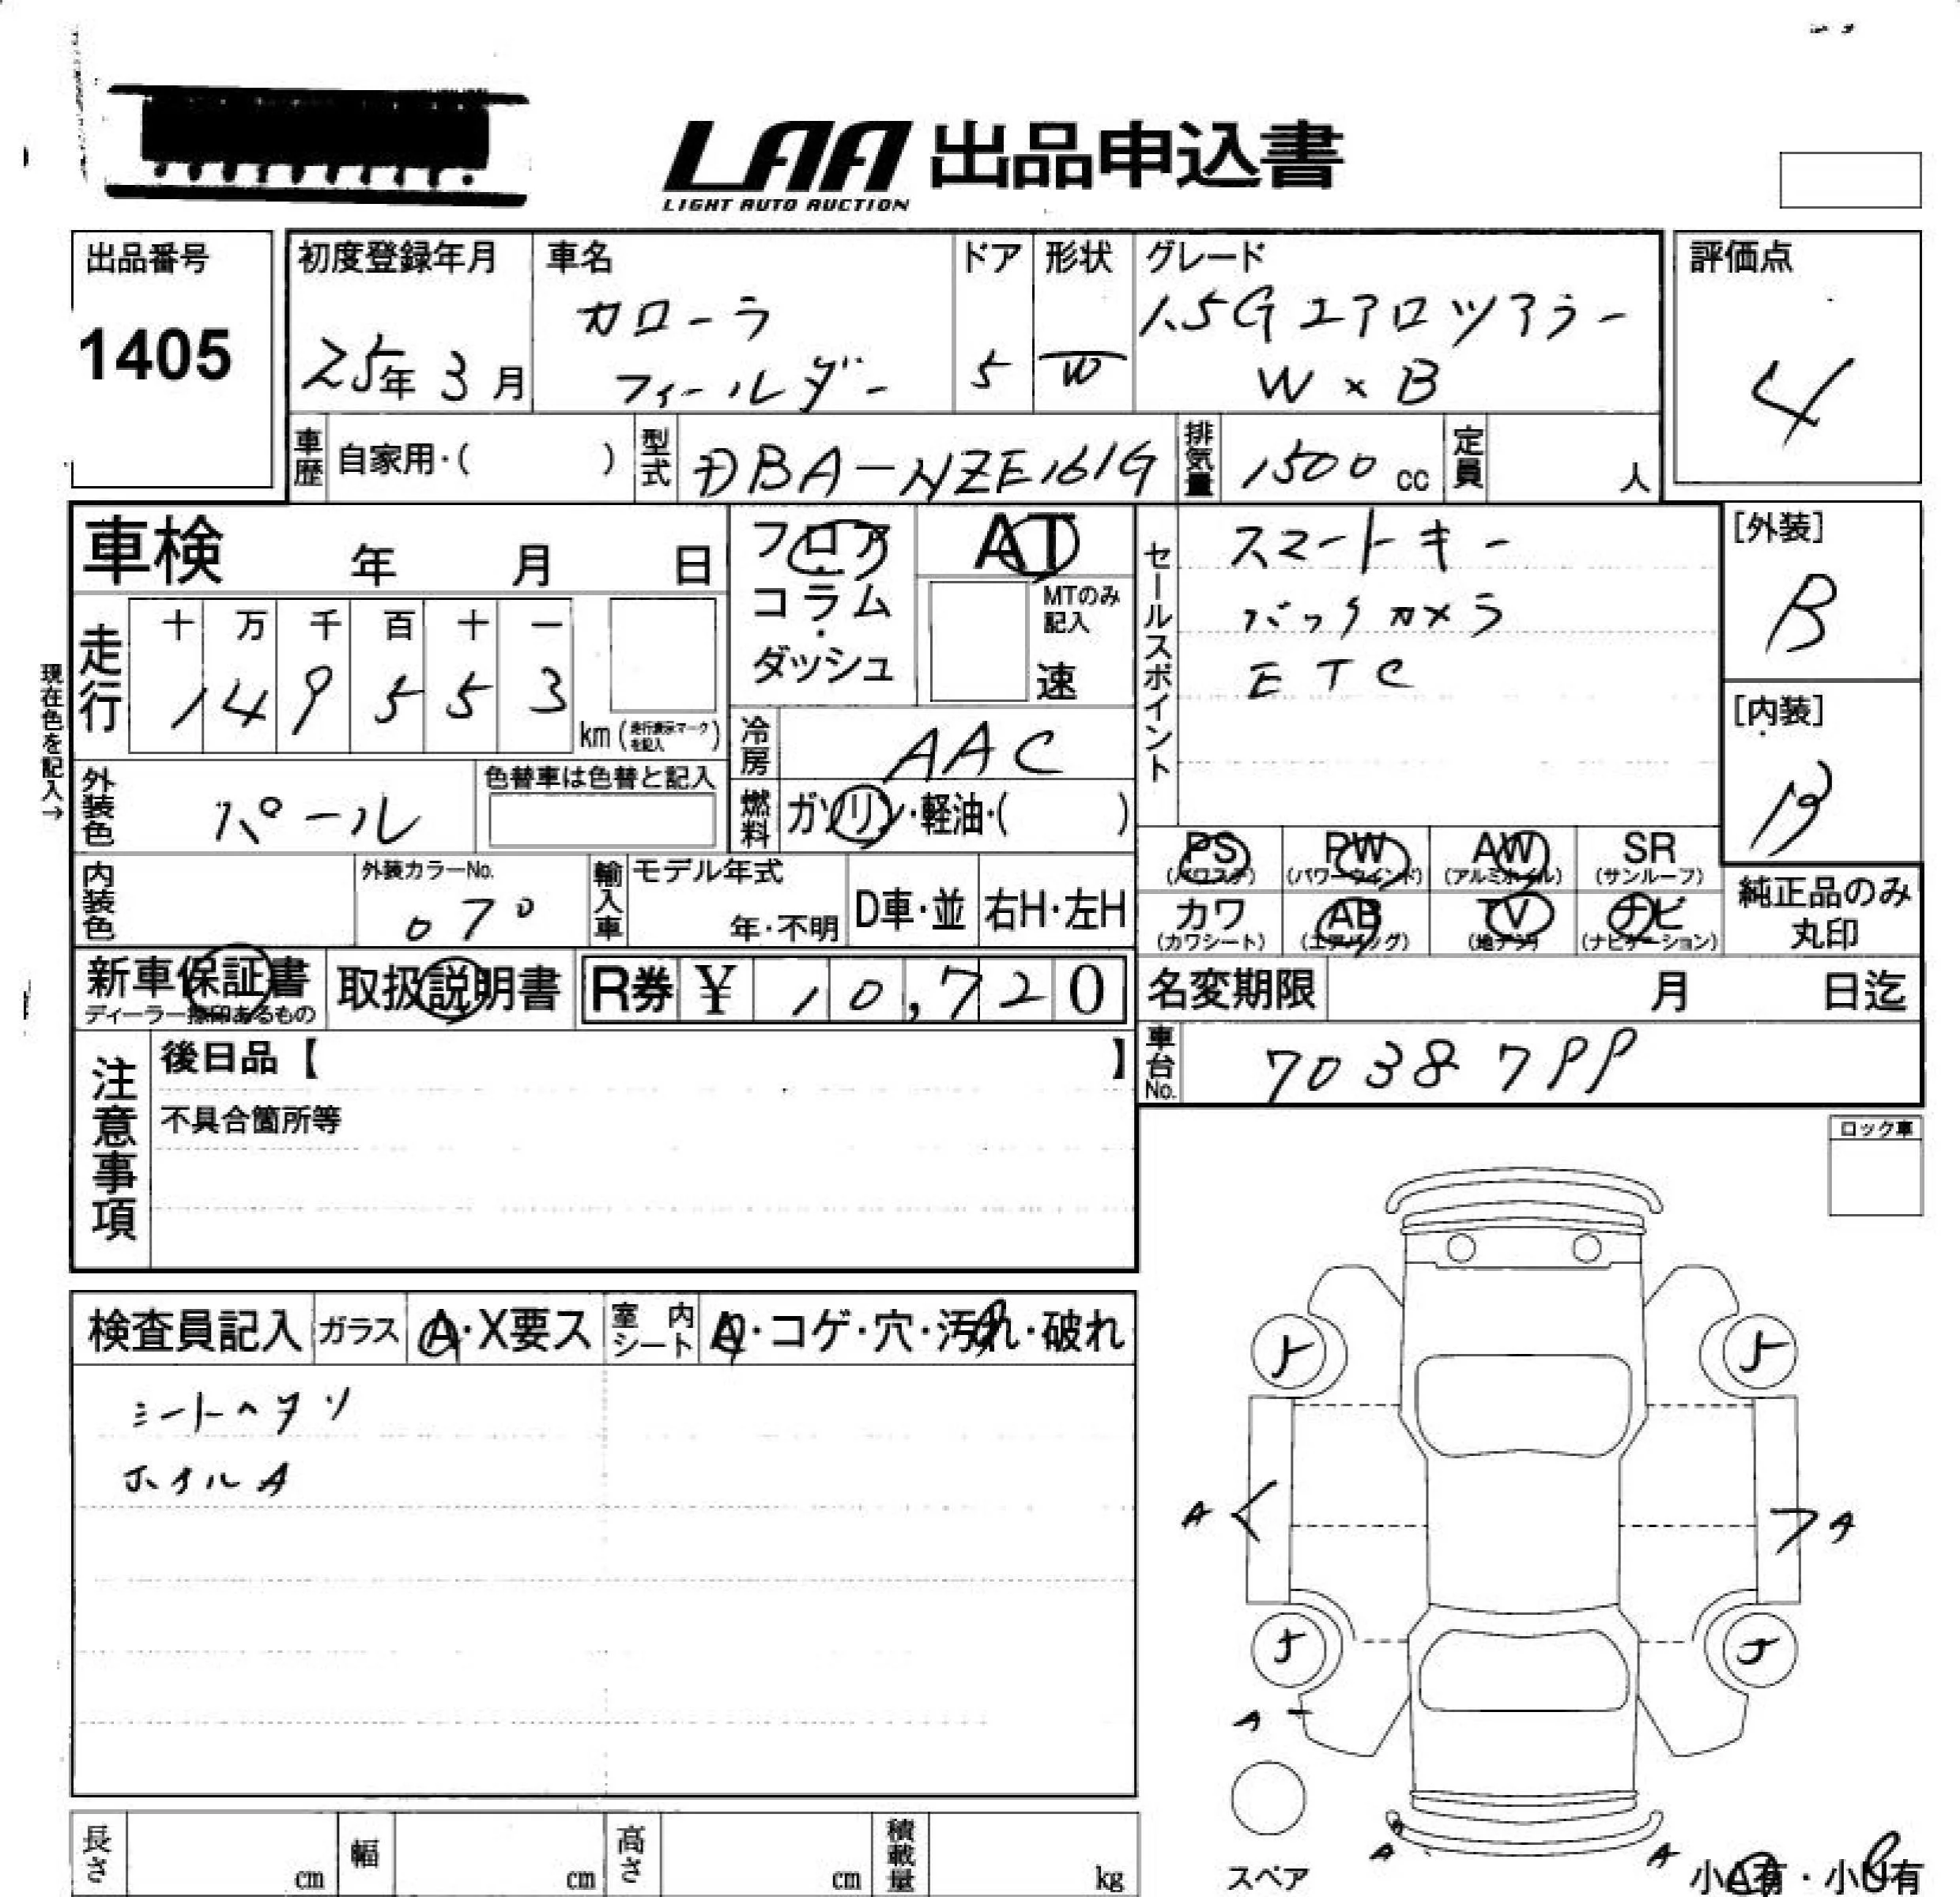 LAA 出品申込書
LIGHT AUTO AUCTION
出品番号
1405
初度登録年月
25年 3月
車名
カローラ
フィールダー
ドア
5
形状
W
グレード
1.5Gエアロツアラー
W×B
評価点
4
車歴 自家用・( )
型式 DBA-NZE161G
排気量 1500 cc
定員 人
車検 年 月 日
フロア
コラム
・
ダッシュ
AT
MTのみ
記入
速
セールスポイント
スマートキー
バックカメラ
ETC
[外装]
B
[内装]
B
現在色を記入→
走行
十 万 千 百 十 一
1 4 9 5 5 3
km (走行表示マークを記入)
冷房 AAC
燃料 ガソリン・軽油・( )
外装色 パール
色替車は色替と記入
内装色
外装カラーNo.
070
輸入車
モデル年式
年・不明
D車・並
右H・左H
PS
(パワステ)
PW
(パワーウィンド)
AW
(アルミホイル)
SR
(サンルーフ)
カワ
(カワシート)
AB
(エアバッグ)
TV
(地デジ)
ナビ
(ナビゲーション)
純正品のみ
丸印
新車保証書
ディーラー捺印あるもの
取扱説明書
R券 ¥ 10,720
名変期限 月 日迄
車台No. 7038799
注意事項
後日品【 】
不具合箇所等
ロック車
検査員記入
ガラス A・X要ス
室内シート A・コゲ・穴・汚れ・破れ
シートヘタリ
ホイルA
A A
A
スペア
A A
小A有・小U有
長さ cm
幅 cm
高さ cm
積載量 kg